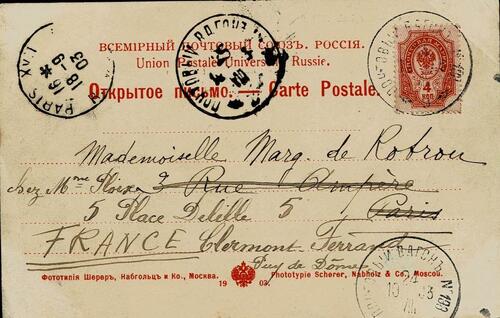 ВСЕМІРНЫЙ ПОЧТОВЫЙ СОЮЗЪ. РОССІЯ.
Union Postale Universelle Russie.
Открытое письмо. — Carte Postale.
PARIS XVI
18
03
4 КОП
ПОЧТОВЫЙ ВАГОНЪ
Mademoiselle Marg. de Rotrou
chez Mme
3 Rue Ampère
5 Place Delille 5, Paris
FRANCE Clermont Ferrand
Puy de Dôme
Фототипія Шереръ, Набгольцъ и Ко., Москва.
1903.
Phototypie Scherer, Nabholz & Co., Moscou.
ПОЧТОВЫЙ ВАГОНЪ
24